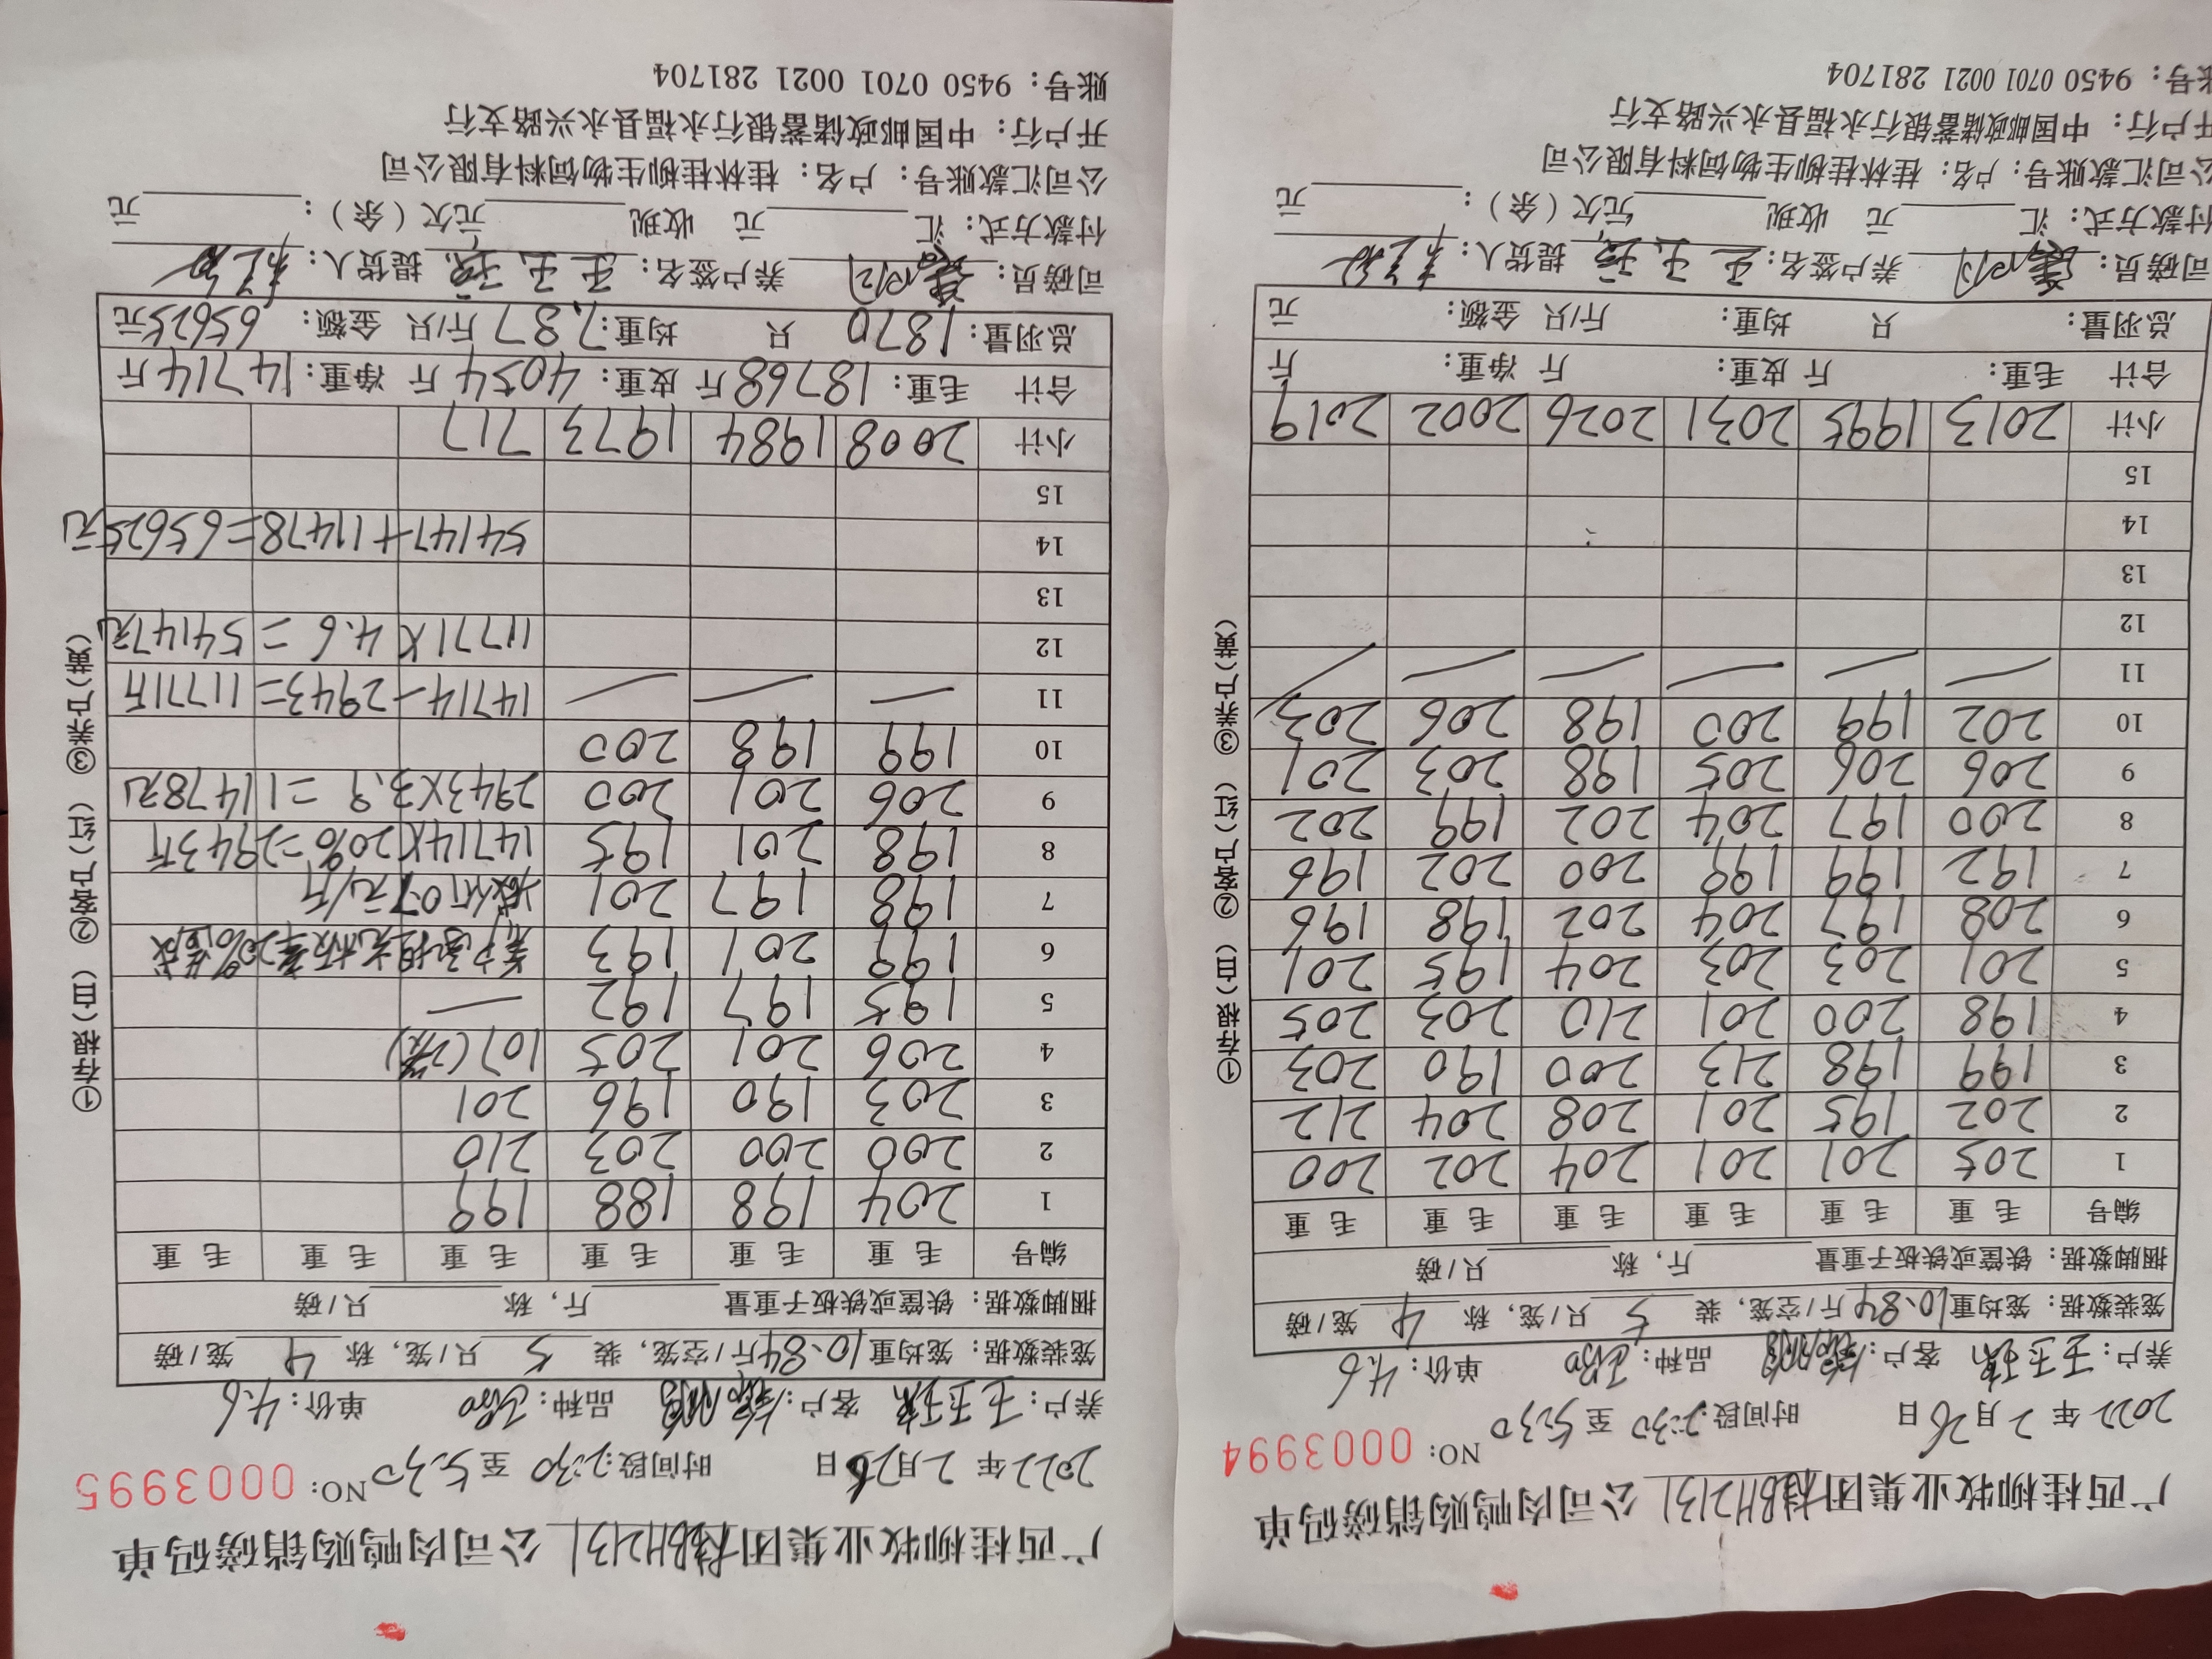 广西桂柳牧业集团 BH2131 公司肉鸭购销磅码单
2022 年 2 月 26 日 时间段:2:30 至 5:30 NO: 0003994
养户: 王玉珠 客户: 品种: 单价: 4.6
笼装数据: 笼均重10.84斤/空笼, 装 5 只/笼, 称 4 笼/磅
捆脚数据: 铁筐或铁板子重量 斤, 称 只/磅
编号 毛重 毛重 毛重 毛重 毛重 毛重
1 205 201 201 204 202 200
2 202 195 201 208 204 212
3 199 198 213 200 190 203
4 198 200 201 210 203 205
5 201 203 203 204 195 201
6 208 197 204 202 198 196
7 192 199 199 200 202 196
8 200 197 204 202 199 202
9 206 206 205 198 203 201
10 202 199 200 198 206 203
11 — — — — — —
12
13
14
15
小计 2013 1995 2031 2026 2002 2019
合计 毛重: 斤 皮重: 斤 净重: 斤
总羽量: 只 均重: 斤/只 金额: 元
司磅员: 养户签名: 王玉珠 提货人:
付款方式: 汇 元 收现 元欠(余): 元
公司汇款账号: 户名: 桂林桂柳生物饲料有限公司
开户行: 中国邮政储蓄银行永福县永兴路支行
账号: 9450 0701 0021 281704
①存根(白) ②客户(红) ③养户(黄)
广西桂柳牧业集团 BH2131 公司肉鸭购销磅码单
2022 年 2 月 26 日 时间段:2:30 至 5:30 NO: 0003995
养户: 王玉珠 客户: 品种: 单价: 4.6
笼装数据: 笼均重10.84斤/空笼, 装 5 只/笼, 称 4 笼/磅
捆脚数据: 铁筐或铁板子重量 斤, 称 只/磅
编号 毛重 毛重 毛重 毛重 毛重 毛重
1 204 198 188 199
2 200 200 203 210
3 203 190 196 201
4 206 201 205 107(2笼)
5 195 197 192 —
6 199 201 193 养户承担光板率20%
7 198 197 201 减价0.7元/斤
8 198 201 195 14714×20%=2943斤
9 206 201 200 2943×3.9=11478元
10 199 198 200
11 — — — 14714-2943=11771斤
12 11771×4.6=54147元
13
14 54147+11478=65625元
15
小计 2008 1984 1973 717
合计 毛重: 18768斤 皮重: 4054斤 净重: 14714斤
总羽量: 1870 只 均重: 7.87斤/只 金额: 65625元
司磅员: 养户签名: 王玉珠 提货人:
付款方式: 汇 元 收现 元欠(余): 元
公司汇款账号: 户名: 桂林桂柳生物饲料有限公司
开户行: 中国邮政储蓄银行永福县永兴路支行
账号: 9450 0701 0021 281704
①存根(白) ②客户(红) ③养户(黄)